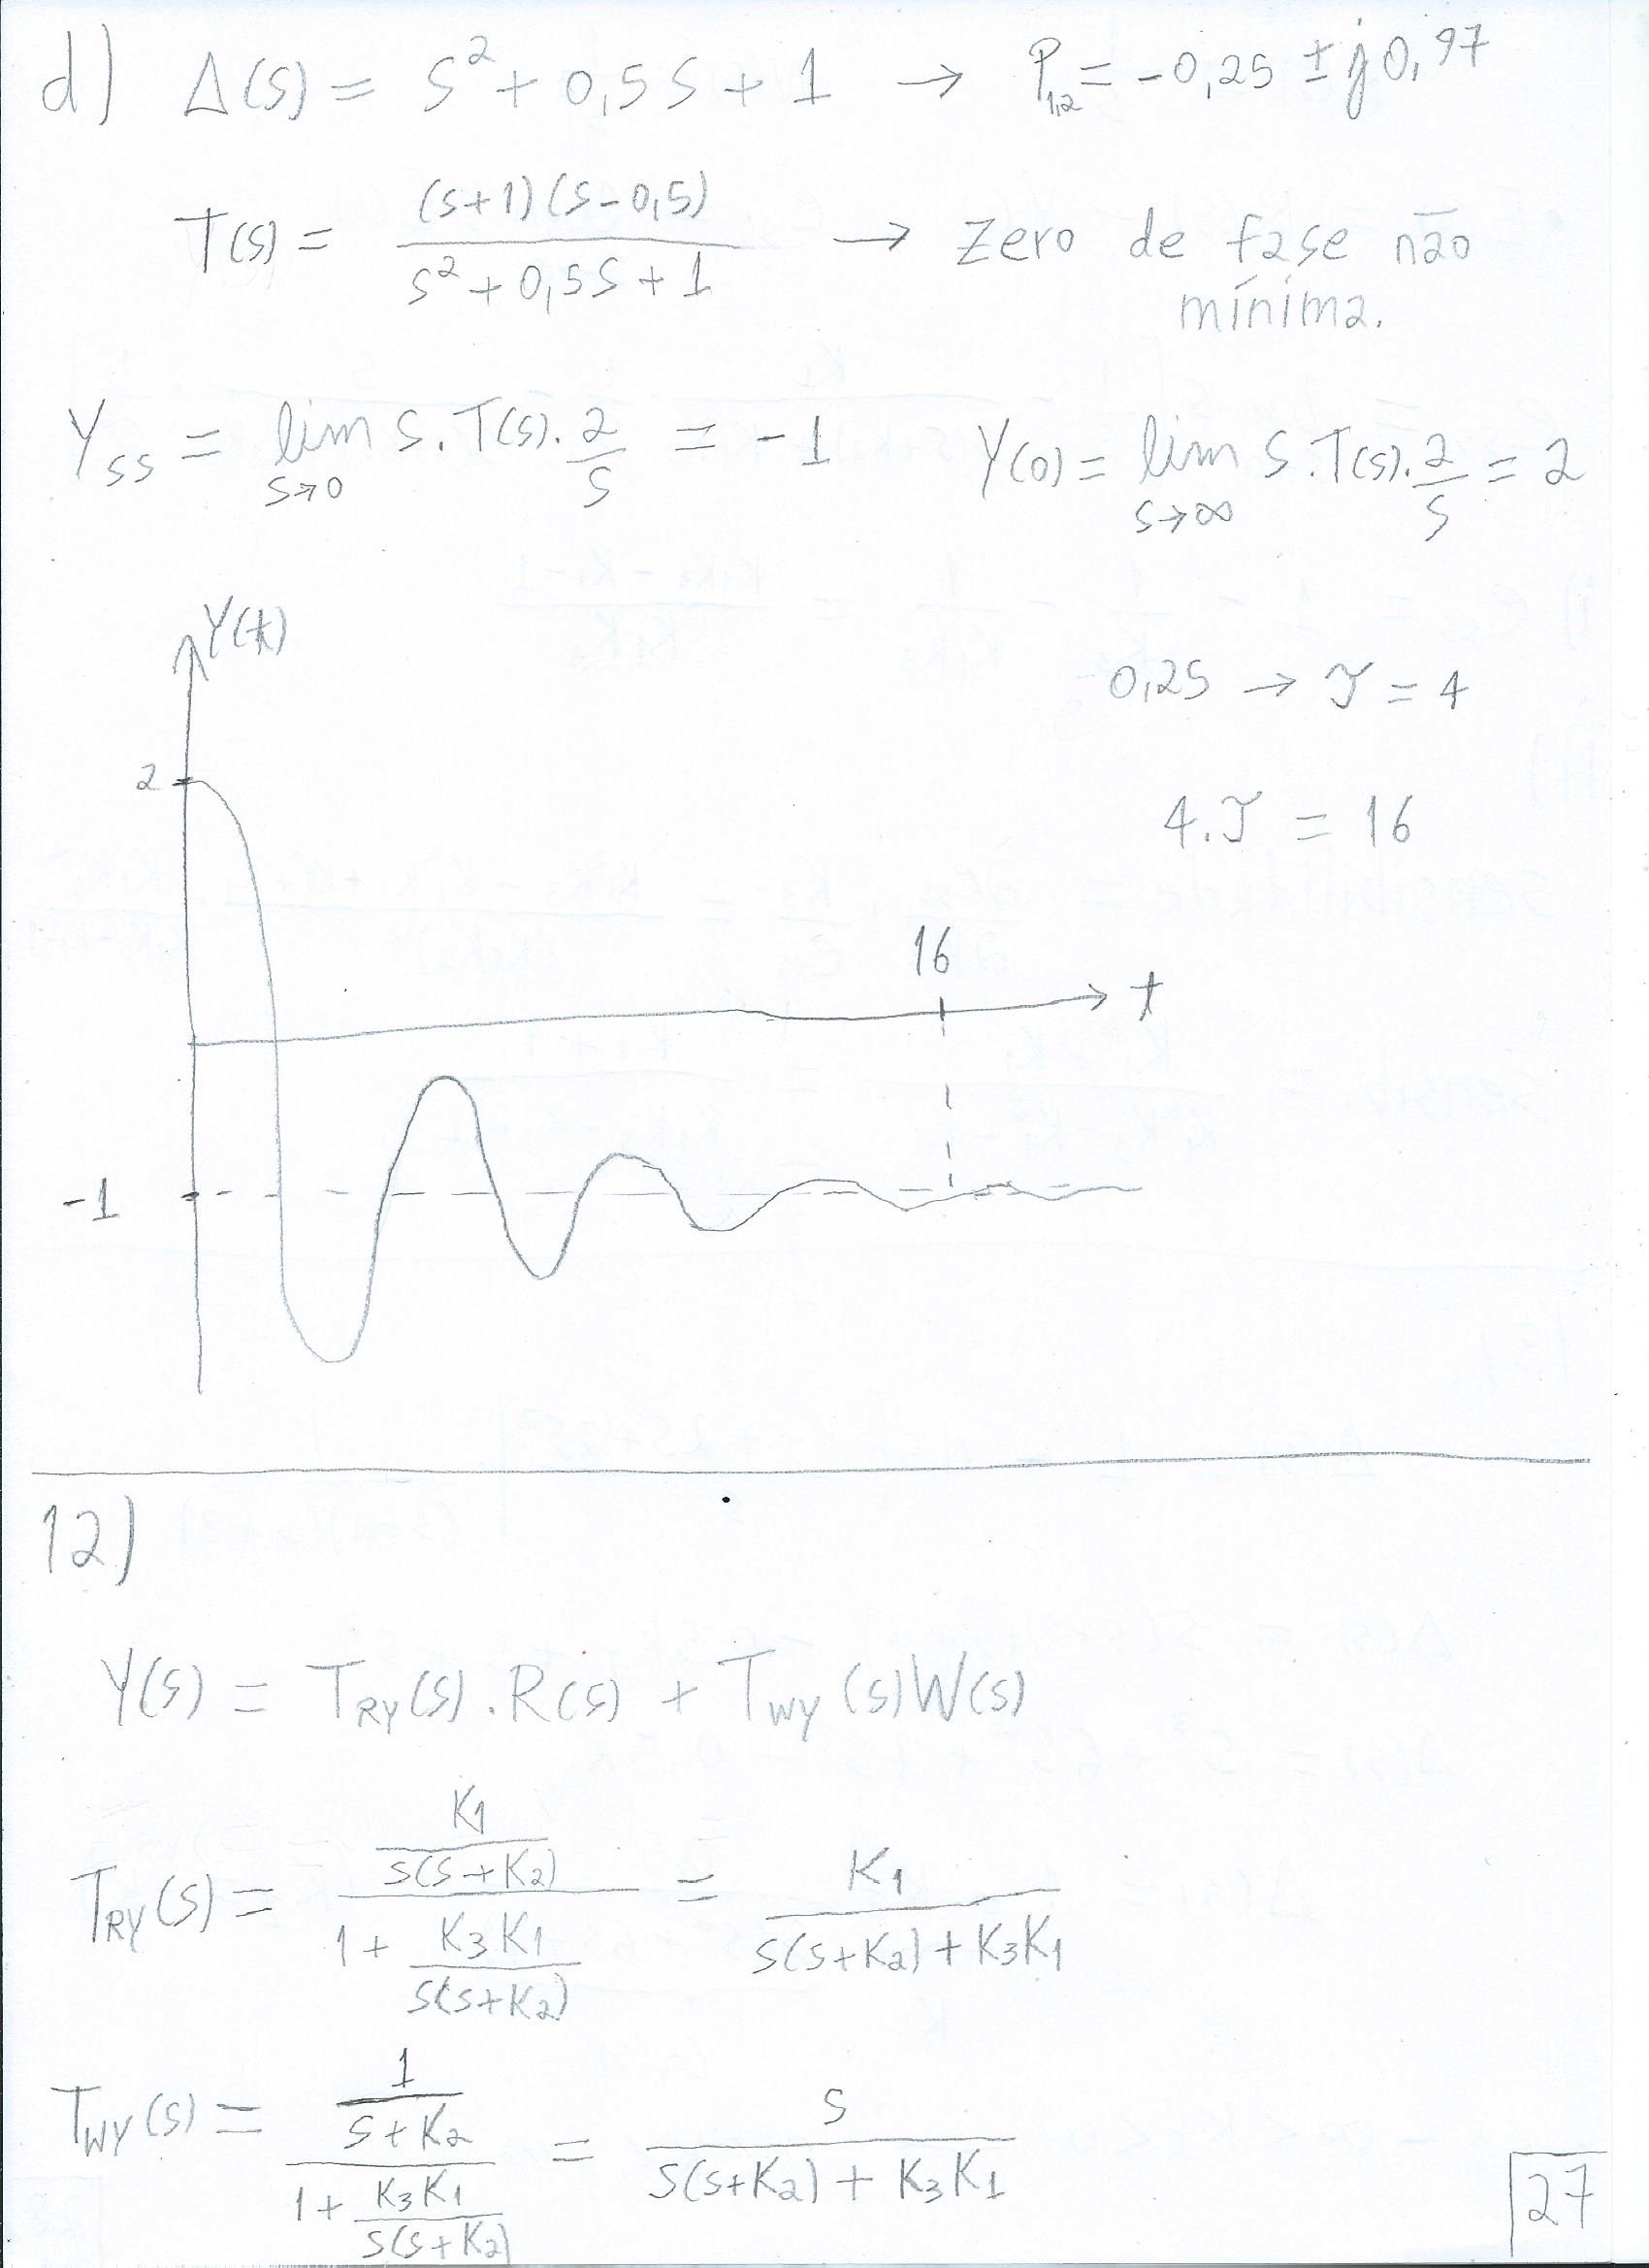 d) Δ(s) = s² + 0,5s + 1 → P₁,₂ = -0,25 ± j0,97
T(s) = (s+1)(s-0,5) / s² + 0,5s + 1 → Zero de fase não
mínima.
Yss = lim s→0 s.T(s).2/s = -1 Y(0) = lim s→∞ s.T(s).2/s = 2
Y(t)
0,25 → τ = 4
2
4.τ = 16
16
t
-1
12)
Y(s) = T_RY(s).R(s) + T_WY(s)W(s)
T_RY(s) = (K₁ / s(s+K₂)) / (1 + K₃K₁ / s(s+K₂)) = K₁ / s(s+K₂) + K₃K₁
T_WY(s) = (1 / s+K₂) / (1 + K₃K₁ / s(s+K₂)) = s / s(s+K₂) + K₃K₁
27